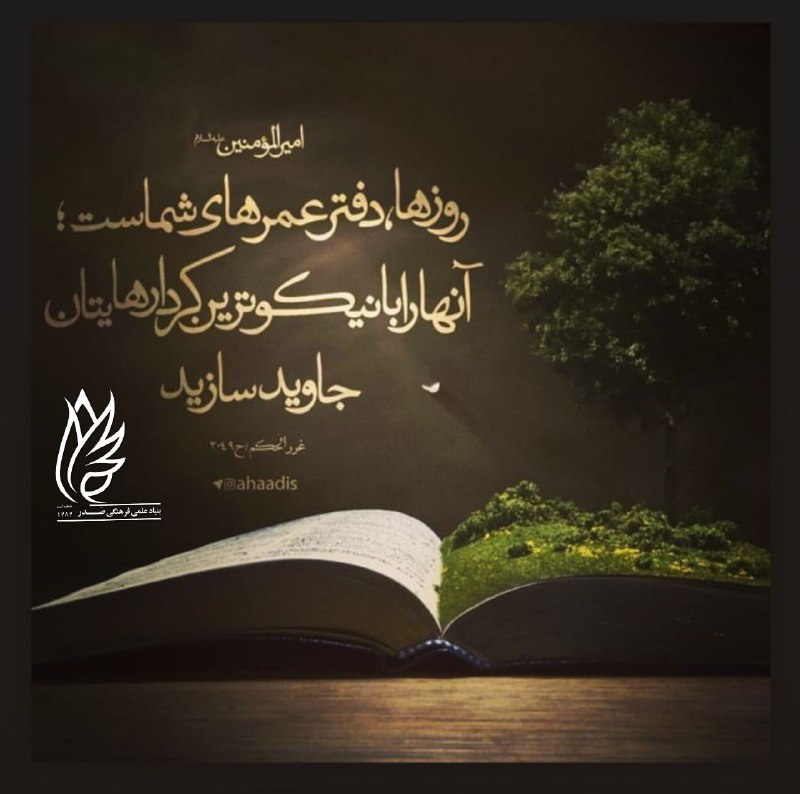 امیرالمؤمنین علیه‌السلام
روزها، دفتر عمرهای شماست؛
آنها را با نیکوترین کردارهایتان
جاوید سازید
غررالحکم/ح۲۰۴۹
@ahaadis
بنیاد علمی فرهنگی صدر